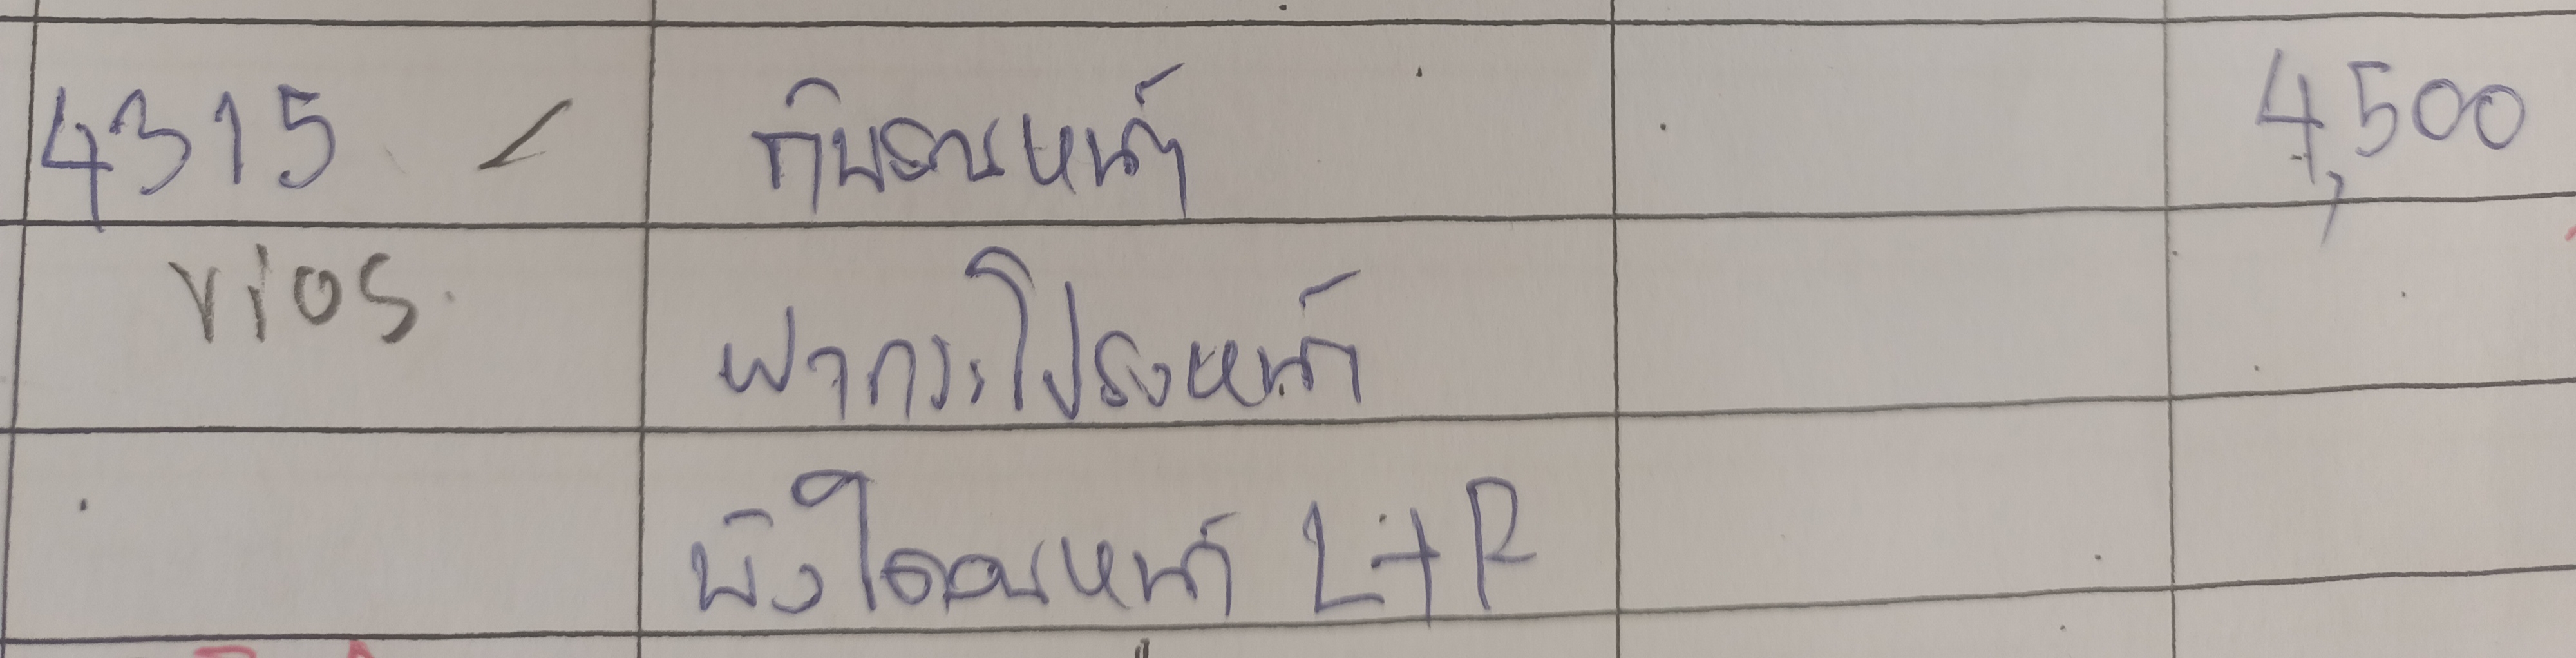 4315 / กันชนหน้า 4,500
vios. ฝากระโปรงหน้า
บังโคลนหน้า L+R